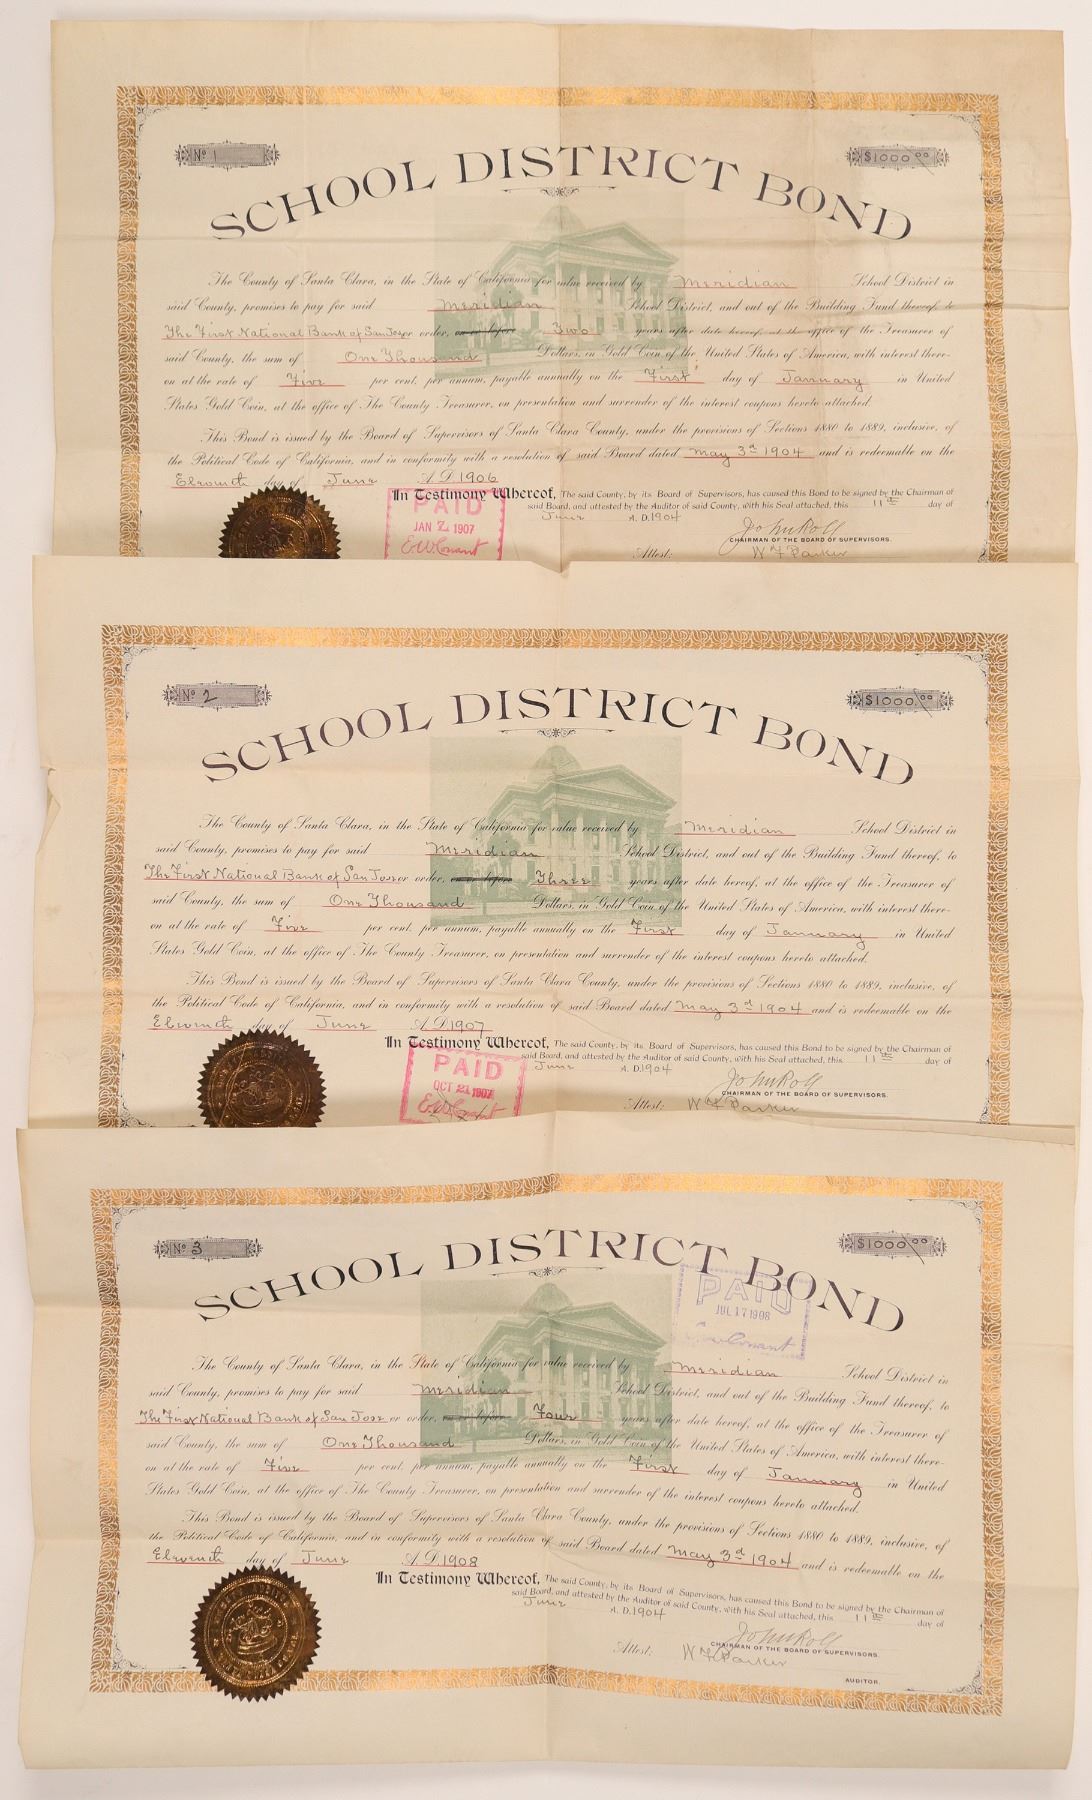 No 1
$1000.00
SCHOOL DISTRICT BOND
The County of Santa Clara, in the State of California for value received by Meridian School District in
said County, promises to pay for said Meridian School District, and out of the Building Fund thereof, to
The First National Bank of San Jose or order, on or before Two years after date hereof, at the office of the Treasurer of
said County, the sum of One Thousand Dollars, in Gold Coin of the United States of America, with interest there-
on at the rate of Five per cent, per annum, payable annually on the First day of January in United
States Gold Coin, at the office of The County Treasurer, on presentation and surrender of the interest coupons hereto attached.
This Bond is issued by the Board of Supervisors of Santa Clara County, under the provisions of Sections 1880 to 1889, inclusive, of
the Political Code of California, and in conformity with a resolution of said Board dated May 3d 1904 and is redeemable on the
Eleventh day of June A.D. 1906
In Testimony Whereof, The said County, by its Board of Supervisors, has caused this Bond to be signed by the Chairman of
said Board, and attested by the Auditor of said County, with his Seal attached, this 11th day of
June A.D. 1904
PAID
JAN 2 1907
E.W. Conant
John Roll
CHAIRMAN OF THE BOARD OF SUPERVISORS.
Attest: W F Parker
No 2
$1000.00
SCHOOL DISTRICT BOND
The County of Santa Clara, in the State of California for value received by Meridian School District in
said County, promises to pay for said Meridian School District, and out of the Building Fund thereof, to
The First National Bank of San Jose or order, on or before Three years after date hereof, at the office of the Treasurer of
said County, the sum of One Thousand Dollars, in Gold Coin of the United States of America, with interest there-
on at the rate of Five per cent, per annum, payable annually on the First day of January in United
States Gold Coin, at the office of The County Treasurer, on presentation and surrender of the interest coupons hereto attached.
This Bond is issued by the Board of Supervisors of Santa Clara County, under the provisions of Sections 1880 to 1889, inclusive, of
the Political Code of California, and in conformity with a resolution of said Board dated May 3d 1904 and is redeemable on the
Eleventh day of June A.D. 1907
In Testimony Whereof, The said County, by its Board of Supervisors, has caused this Bond to be signed by the Chairman of
said Board, and attested by the Auditor of said County, with his Seal attached, this 11th day of
June A.D. 1904
PAID
OCT 21 1907
E.W. Conant
John Roll
CHAIRMAN OF THE BOARD OF SUPERVISORS.
Attest: W F Parker
No 3
$1000.00
SCHOOL DISTRICT BOND
PAID
JUL 17 1908
E.W. Conant
The County of Santa Clara, in the State of California for value received by Meridian School District in
said County, promises to pay for said Meridian School District, and out of the Building Fund thereof, to
The First National Bank of San Jose or order, on or before Four years after date hereof, at the office of the Treasurer of
said County, the sum of One Thousand Dollars, in Gold Coin of the United States of America, with interest there-
on at the rate of Five per cent, per annum, payable annually on the First day of January in United
States Gold Coin, at the office of The County Treasurer, on presentation and surrender of the interest coupons hereto attached.
This Bond is issued by the Board of Supervisors of Santa Clara County, under the provisions of Sections 1880 to 1889, inclusive, of
the Political Code of California, and in conformity with a resolution of said Board dated May 3d 1904 and is redeemable on the
Eleventh day of June A.D. 1908
In Testimony Whereof, The said County, by its Board of Supervisors, has caused this Bond to be signed by the Chairman of
said Board, and attested by the Auditor of said County, with his Seal attached, this 11th day of
June A.D. 1904
John Roll
CHAIRMAN OF THE BOARD OF SUPERVISORS.
Attest: W F Parker
AUDITOR.